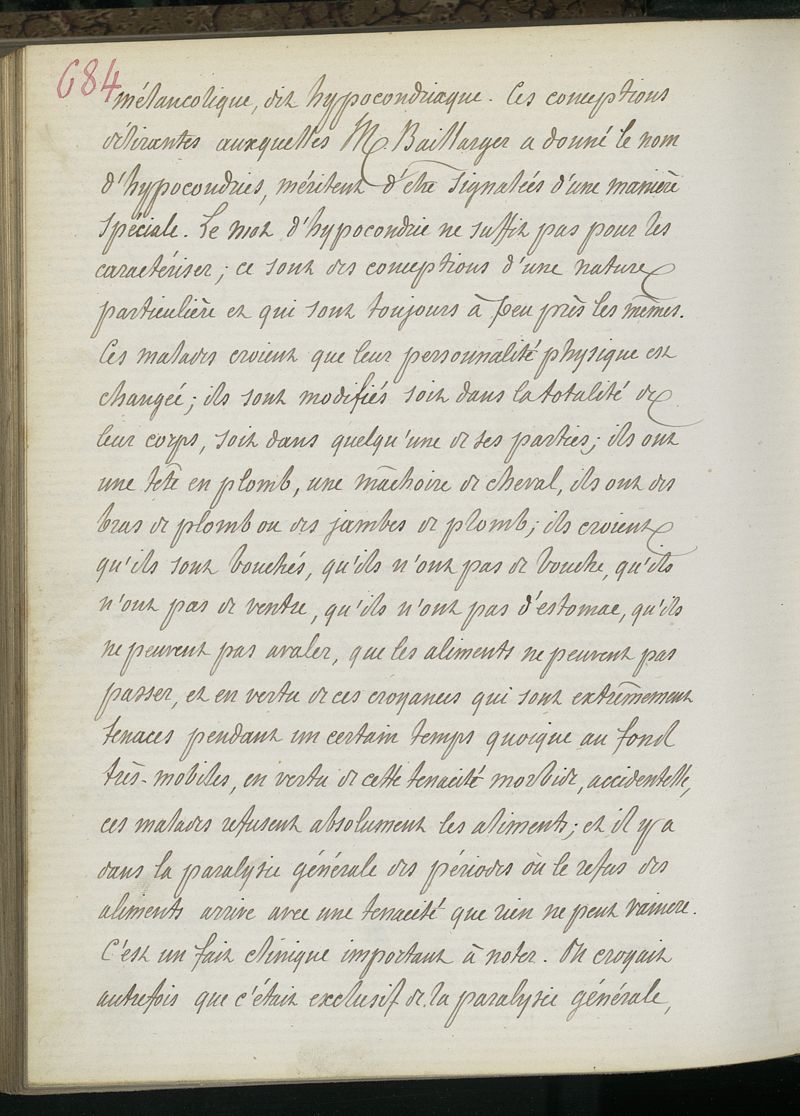 684
mélancolique, dit hypocondriaque. Ces conceptions
délirantes auxquelles M Baillarger a donné le nom
d'hypocondries, méritent d'être signalées d'une manière
spéciale. Le mot d'hypocondrie ne suffit pas pour les
caractériser; ce sont des conceptions d'une nature
particulière et qui sont toujours à peu près les mêmes.
Ces malades croient que leur personnalité physique est
changée; ils sont modifiés soit dans la totalité de
leur corps, soit dans quelqu'une de ses parties; ils ont
une tête en plomb, une mâchoire de cheval, ils ont des
bras de plomb ou des jambes de plomb; ils croient
qu'ils sont bouchés, qu'ils n'ont pas de bouche, qu'ils
n'ont pas de ventre, qu'ils n'ont pas d'estomac, qu'ils
ne peuvent pas avaler, que les aliments ne peuvent pas
passer, et en vertu de ces croyances qui sont extrêmement
tenaces pendant un certain temps quoique au fond
très-mobiles, en vertu de cette tenacité morbide, accidentelle,
ces malades refusent absolument les aliments; et il y a
dans la paralysie générale des périodes où le refus des
aliments arrive avec une tenacité que rien ne peut vaincre.
C'est un fait clinique important à noter. On croyait
autrefois que c'était exclusif de la paralysie générale,